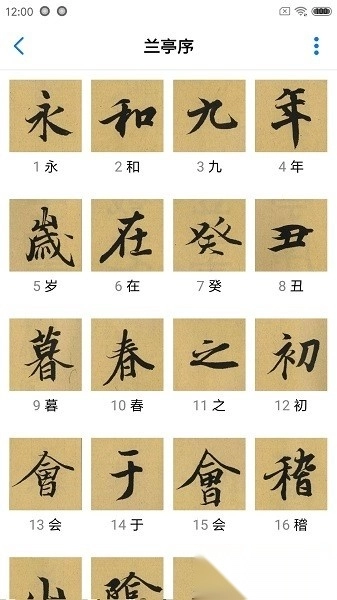 12:00
兰亭序
永 和 九 年
1 永 2 和 3 九 4 年
歲 在 癸 丑
5 岁 6 在 7 癸 8 丑
暮 春 之 初
9 暮 10 春 11 之 12 初
會 于 會 稽
13 会 14 于 15 会 16 稽
山 陰